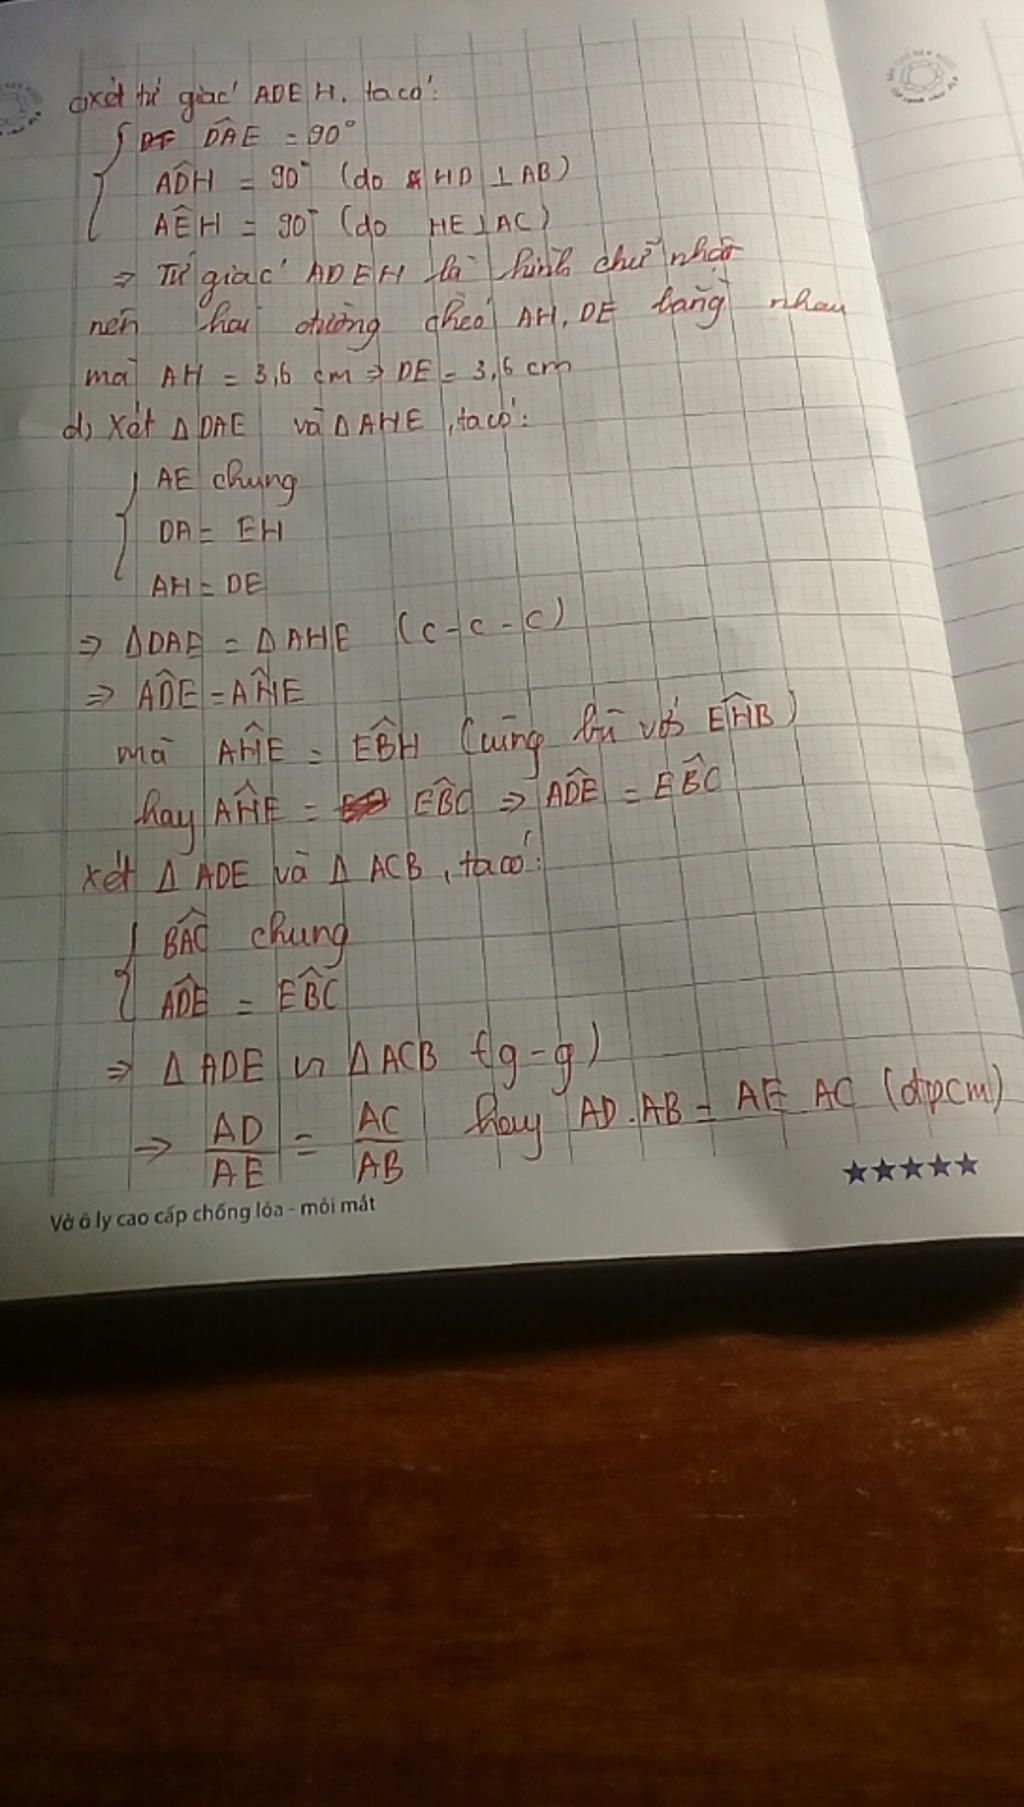 c) xét tứ giác ADEH, ta có:
DÂE = 90°
AD̂H = 90° (do HD ⊥ AB)
AÊH = 90° (do HE ⊥ AC)
⇒ Tứ giác ADEH là hình chữ nhật
nên hai đường chéo AH, DE bằng nhau
mà AH = 3,6 cm ⇒ DE = 3,6 cm
d) Xét Δ DAE và Δ AHE, ta có:
AE chung
DA = EH
AH = DE
⇒ Δ DAE = Δ AHE (c-c-c)
⇒ AD̂E = AĤE
mà AĤE = EB̂H (cùng bù với EĤB)
hay AĤE = EB̂C ⇒ AD̂E = EB̂C
xét Δ ADE và Δ ACB, ta có:
BÂC chung
AD̂E = EB̂C
⇒ Δ ADE ∽ Δ ACB (g-g)
⇒ AD/AE = AC/AB hay AD.AB = AE.AC (đpcm)
Vở ô ly cao cấp chống lóa - mỏi mắt
★★★★★